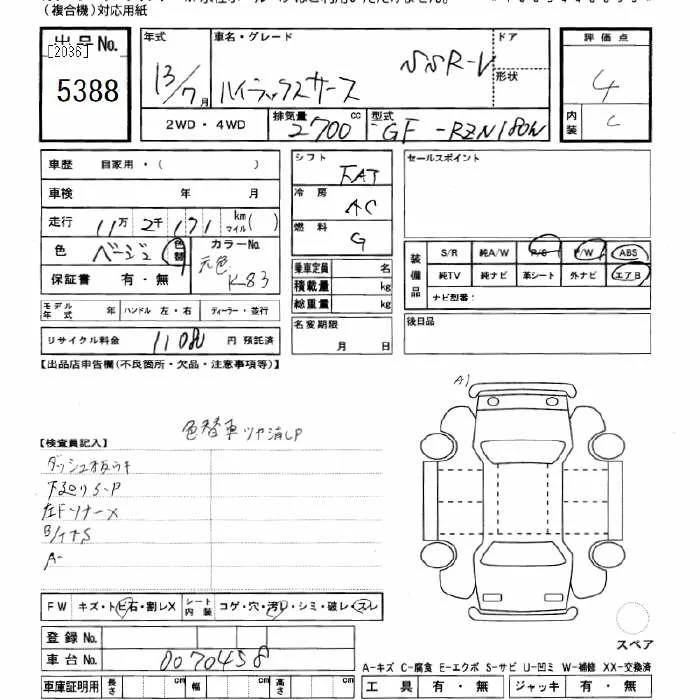 (複合機)対応用紙
出品No.
[2036]
5388
年式
13/7月
車名・グレード
ハイラックスサーフ
SSR-V
ドア
形状
2WD・4WD
排気量
2700 cc
型式
GF-RZN180W
評価点
4
内装
C
車歴 自家用・( )
車検 年 月
走行 11万 2千 171 km マイル( )
色 ベージュ 色替
カラーNo.
元色 K-83
保証書 有・無
モデル年式 年 ハンドル 左・右 ディーラー・並行
リサイクル料金 11080 円 預託済
シフト
FAT
冷房
AC
燃料
G
乗車定員 名
積載量 kg
総重量 kg
名変期限
月 日
セールスポイント
装備品
S/R 純A/W P/S P/W ABS
純TV 純ナビ 革シート 外ナビ エアB
ナビ型番:
後日品
【出品店申告欄(不良箇所・欠品・注意事項等)】
色替車ツヤ消しP
【検査員記入】
ダッシュ板ウキ
下廻りS・P
左Fソナー×
A-
A1
FW キズ・トビ石・割レX
シート内装 コゲ・穴・汚レ・シミ・破レ・スレ
登録No.
車台No. 0070458
車庫証明用 長さ cm 幅 cm 高さ cm
スペア
A-キズ C-腐食 E-エクボ S-サビ U-凹ミ W-補修 XX-交換済
工具 有・無 ジャッキ 有・無